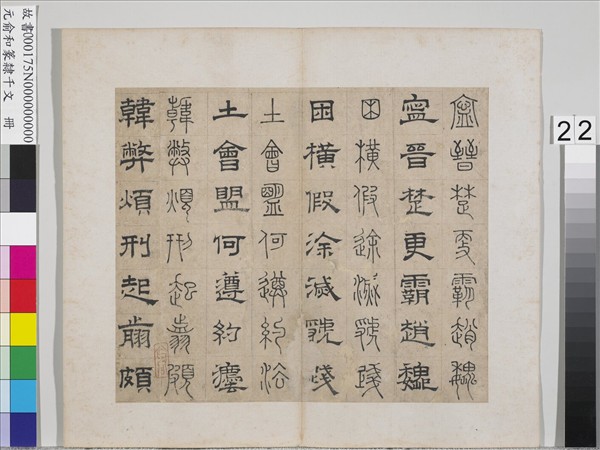 寍晉楚更霸趙魏
寍晉楚更霸趙魏
困橫假途滅虢踐
困橫假涂滅虢踐
土會盟何遵約法
土會盟何遵約灋
韓弊煩刑起翦頗
韓弊煩刑起翦頗
故書000175N000000000
元俞和篆隸千文 冊
22